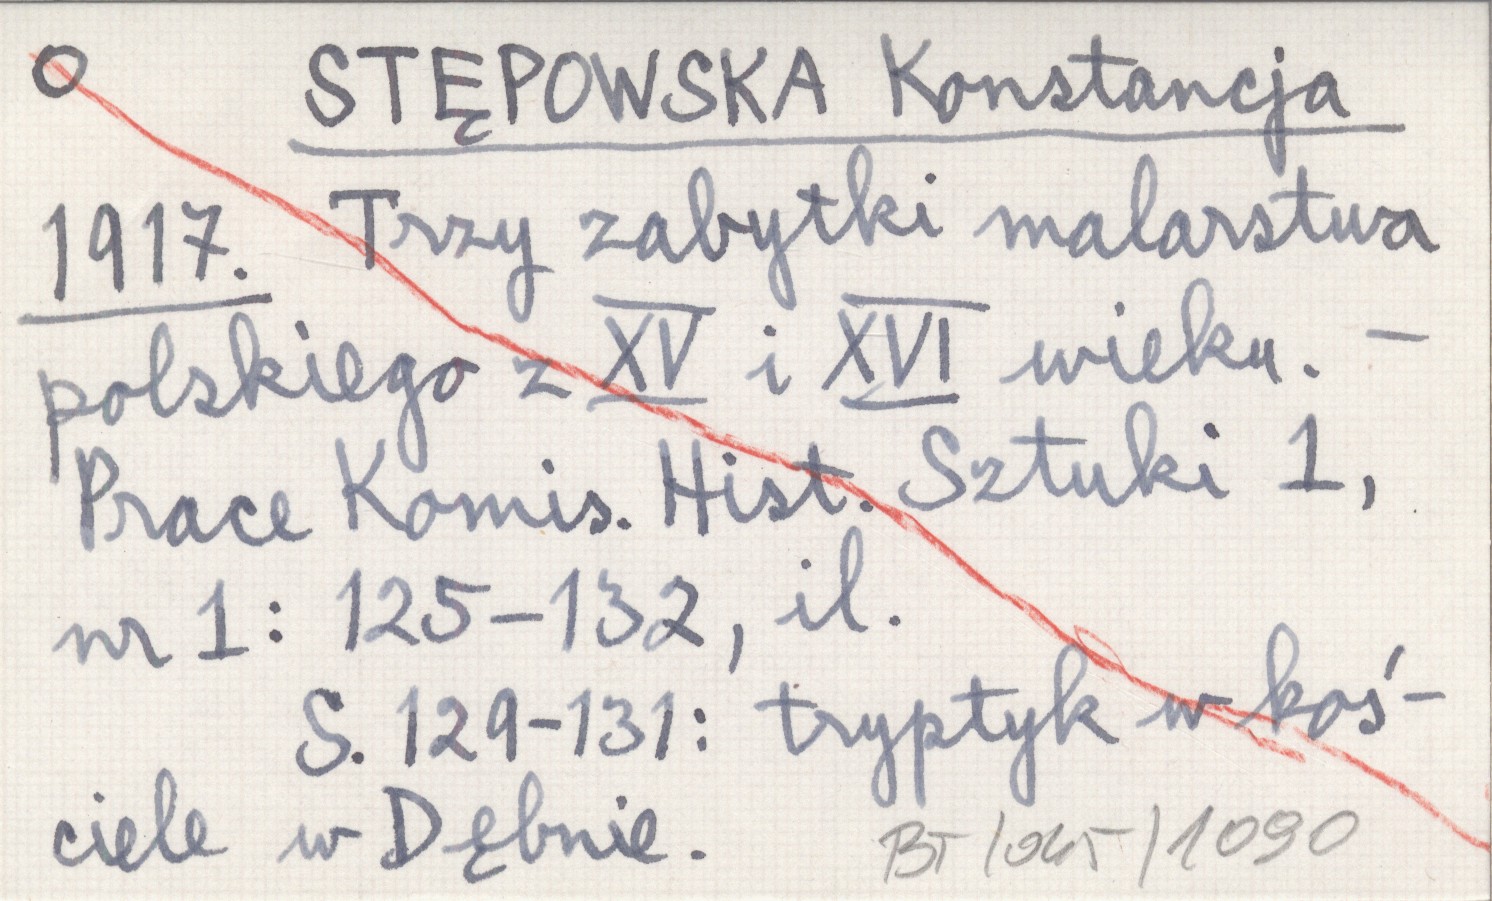 O STĘPOWSKA Konstancja
1917. Trzy zabytki malarstwa
polskiego z XV i XVI wieku. –
Prace Komis. Hist. Sztuki 1,
nr 1: 125–132, il.
S. 129–131: tryptyk w koś-
ciele w Dębnie.
BT / /1090